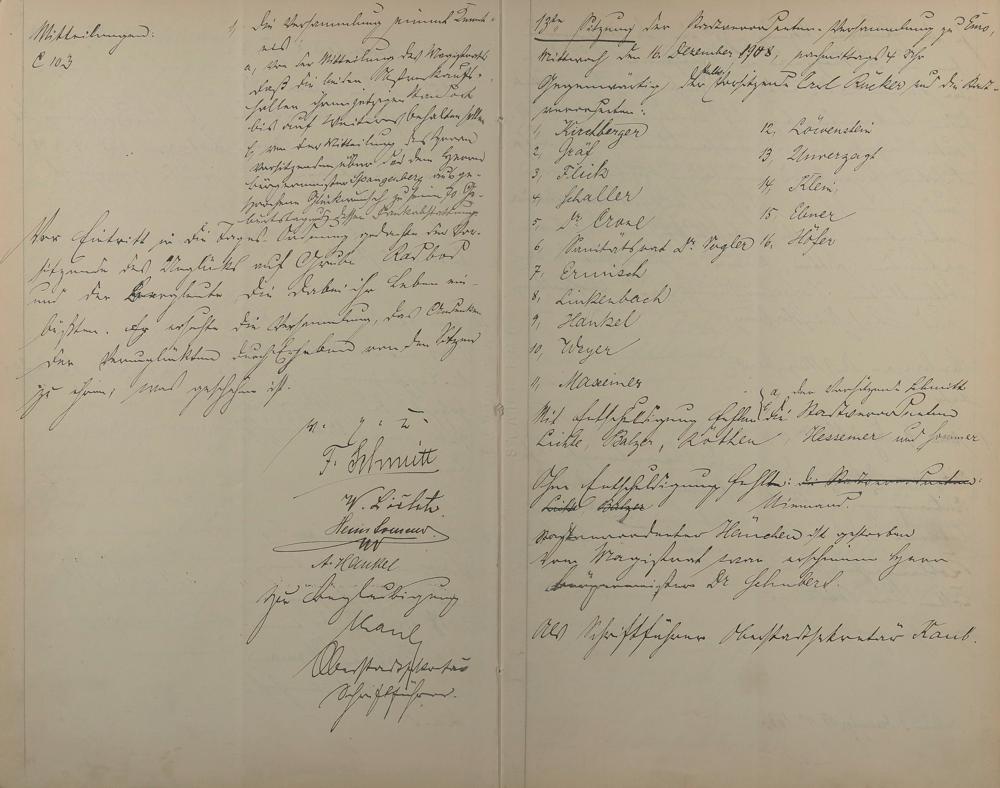 Mitteilungen.
C 103
1, Die Versammlung nimmt Kennt-
nis
a, von der Mitteilung des Magistrats
daß die beiden
fallen ihren jetzigen Standort
bis auf Weiteres behalten sollen
b, von der Mitteilung des Herrn
Vorsitzenden über das dem Herrn
Bürgermeister Spangenberg ausge-
sprochene Glückwunsch zu seinem 70 Ge-
burtstag und dessen Dankabstattung
Vor Eintritt in die Tages-Ordnung gedachte der Vor-
sitzende des Unglücks auf Grube Radbod
und der Bergleute die dabei ihr Leben ein-
büßten. Er ersuchte die Versammlung, das Andenken
der Verunglückten durch Erheben von den Sitzen
zu ehren, was geschehen ist.
v. g. u.
F. Schmitt
W. Lichte
Heinr. Sommer
A. Hankel
Zur Beglaubigung
Kaul
Oberstadtsekretär
Schriftführer.
13te Sitzung der Stadtverordneten-Versammlung zu Ems,
Mittwoch den 16. Dezember 1908, nachmittags 4 Uhr
Gegenwärtig, der stellv. Vorsitzende Carl Rücker und die Stadt-
verordneten:
1, Kirchberger
2, Gräf
3, Flick
4, Schaller
5, Dr. Crone
6, Sanitätsrat Dr. Vogler
7, Ermisch
8, Linkenbach
9, Hankel
10, Weyer
11, Maxeiner
12, Löwenstein
13, Unverzagt
14, Klein
15, Ebner
16, Höfer
a, der Vorsitzende Schmitt
Mit Entschuldigung fehlen b, die Stadtverordneten
Lichte, Balzer, Köthen, Hessemer und Sommer
Ohne Entschuldigung fehlte: die Stadtverordneten:
Lichte Balzer Niemand.
Stadtverordneter Hänchen ist gestorben
Vom Magistrat war erschienen Herr
Bürgermeister Dr. Schubert.
Als Schriftführer Oberstadtsekretär Kaul.